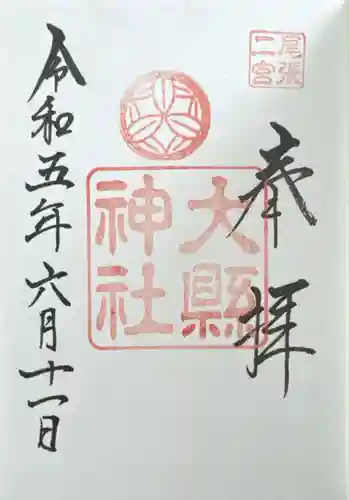 尾張
二宮
奉拝
大縣
神社
令和五年六月十一日